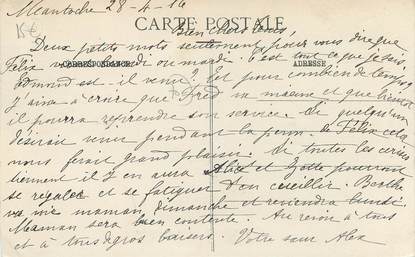 Meantoche 28-4-16
CARTE POSTALE
Bien chers tous,
CORRESPONDANCE
ADRESSE
Deux petits mots seulement pour vous dire que
Félix lundi ou mardi. C'est tout ce que je sais.
Edmond est-il venu? Et pour combien de temps
J'aime à croire que Fred va mieux et que bientôt
il pourra reprendre son service. Si quelqu'un
désirait venir pendant la perm. de Félix cela
nous ferait grand plaisir. Si toutes les cerises
tiennent il y en aura Alice et pourront
se régaler et se fatiguer d'en cueillir. Berthe
va voir maman dimanche et reviendra lundi.
Maman sera bien contente. Au revoir à tous
et à tous de gros baisers. Votre sœur Alex